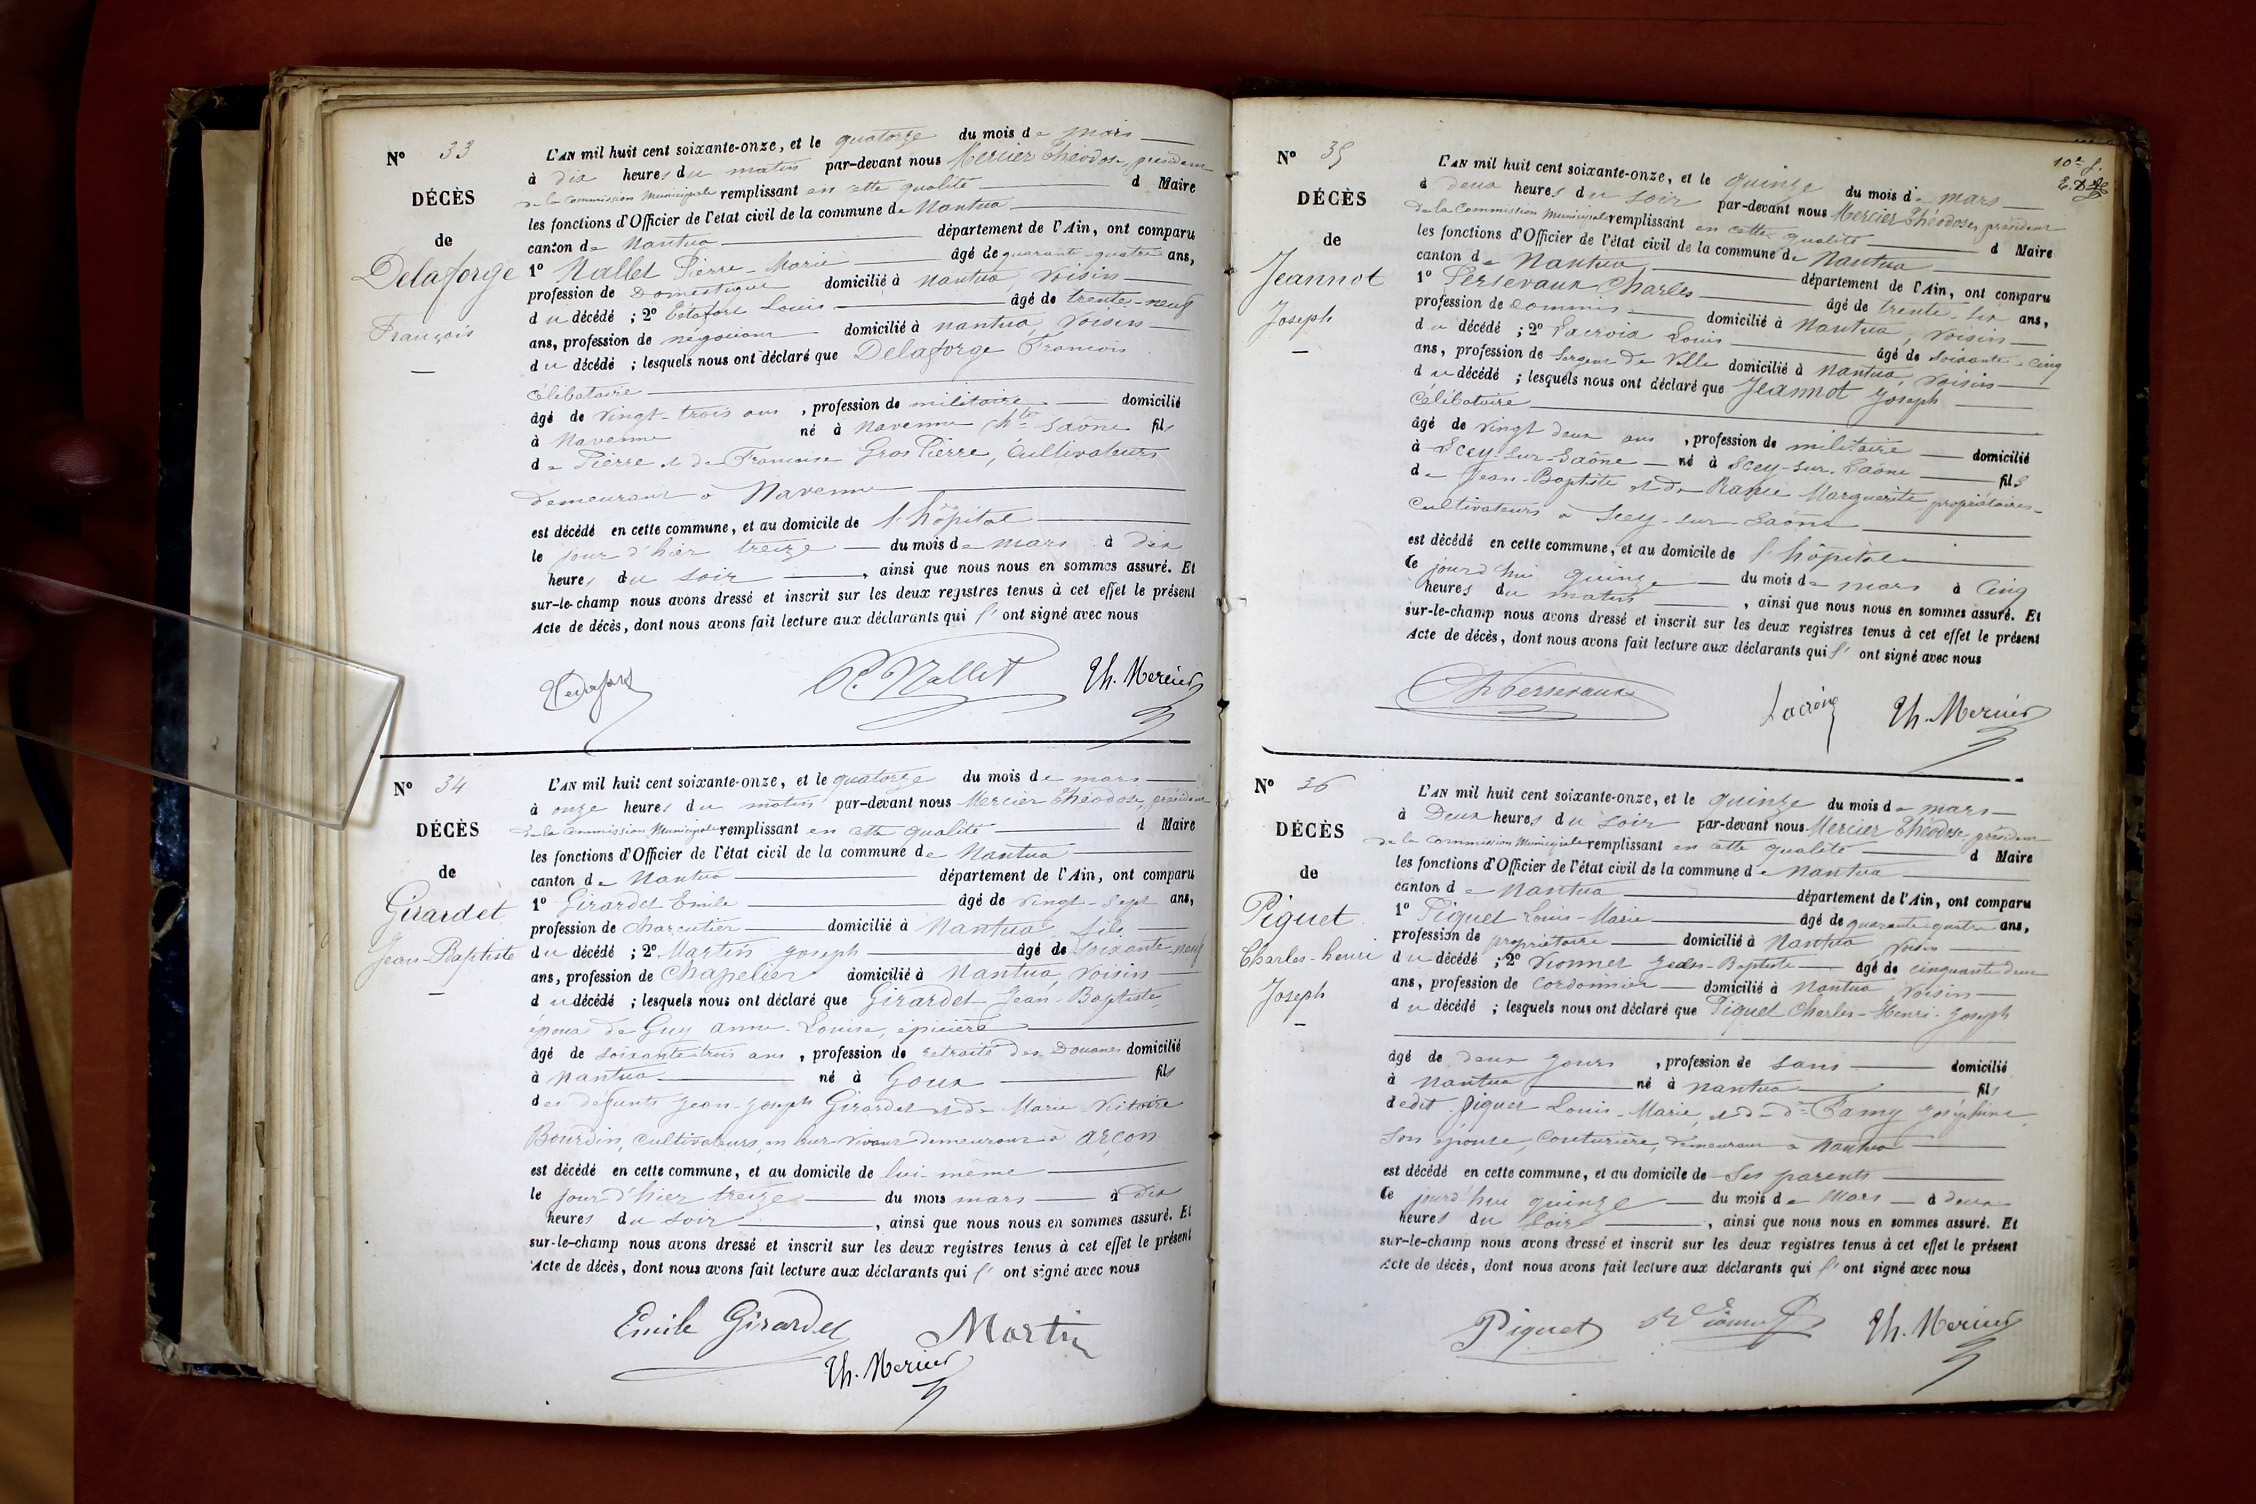 N° 33
DÉCÈS
de
Delaforge
François
L'AN mil huit cent soixante-onze, et le quatorze du mois de mars
à dix heures du matin par-devant nous Mercier Théodose, président
de la Commission Municipale remplissant en cette qualité d Maire
les fonctions d'Officier de l'état civil de la commune de Nantua
canton de Nantua département de l'Ain, ont comparu
1° Nallet Pierre-Marie âgé de quarante-quatre ans,
profession de Domestique domicilié à Nantua, voisin
du décédé ; 2° Louis âgé de trente-neuf
ans, profession de négociant domicilié à Nantua, voisin
du décédé ; lesquels nous ont déclaré que Delaforge François
célibataire
âgé de vingt-trois ans, profession de militaire domicilié
à Navenne né à Navenne hte Saône fils
de Pierre et de Francoise Gros Pierre, Cultivateurs
demeurant à Navenne
est décédé en cette commune, et au domicile de l'hôpital
le jour d'hier treize du mois de mars à dix
heures du soir, ainsi que nous nous en sommes assuré. Et
sur-le-champ nous avons dressé et inscrit sur les deux registres tenus à cet effet le présent
Acte de décès, dont nous avons fait lecture aux déclarants qui l' ont signé avec nous
P. Nallet Th. Mercier
N° 34
DÉCÈS
de
Girardet
Jean-Baptiste
L'AN mil huit cent soixante-onze, et le quatorze du mois de mars
à onze heures du matin par-devant nous Mercier Théodose, président
de la Commission Municipale remplissant en cette qualité d Maire
les fonctions d'Officier de l'état civil de la commune de Nantua
canton de Nantua département de l'Ain, ont comparu
1° Girardet Emile âgé de vingt-sept ans,
profession de Charcutier domicilié à Nantua, fils
du décédé ; 2° Martin Joseph âgé de soixante-neuf
ans, profession de Chapelier domicilié à Nantua, voisin
du décédé ; lesquels nous ont déclaré que Girardet Jean-Baptiste
époux de Guy anne-Louise, épicière
âgé de soixante trois ans, profession de retraité des Douanes domicilié
à Nantua né à Goux fils
des défunts Jean-Joseph Girardet et de Marie Victoire
Bourdin, cultivateurs, en leur vivant demeurant à Arçon
est décédé en cette commune, et au domicile de lui-même
le jour d'hier treize du mois mars à dix
heures du soir, ainsi que nous nous en sommes assuré. Et
sur-le-champ nous avons dressé et inscrit sur les deux registres tenus à cet effet le présent
Acte de décès, dont nous avons fait lecture aux déclarants qui l' ont signé avec nous
Emile Girardet Martin
Th. Mercier
10e f.
N° 35
DÉCÈS
de
Jeannot
Joseph
L'AN mil huit cent soixante-onze, et le quinze du mois de mars
à deux heures du soir par-devant nous Mercier Théodose, président
de la Commission Municipale remplissant en cette qualité d Maire
les fonctions d'Officier de l'état civil de la commune de Nantua
canton de Nantua département de l'Ain, ont comparu
1° Persevaux Charles âgé de trente-six ans,
profession de commis domicilié à Nantua, voisin
du décédé ; 2° Lacroix Louis âgé de soixante-cinq
ans, profession de Sergent de Ville domicilié à Nantua, voisin
du décédé ; lesquels nous ont déclaré que Jeannot Joseph
célibataire
âgé de vingt deux ans, profession de militaire domicilié
à Scey-sur-Saône né à Scey-sur-Saône fils
de Jean-Baptiste et de Marguerite propriétaires
Cultivateurs à Scey-sur-Saône
est décédé en cette commune, et au domicile de l'hôpital
le jourd'hui quinze du mois de mars à Cinq
heures du matin, ainsi que nous nous en sommes assuré. Et
sur-le-champ nous avons dressé et inscrit sur les deux registres tenus à cet effet le présent
Acte de décès, dont nous avons fait lecture aux déclarants qui l' ont signé avec nous
Ch Persevaux Lacroix Th. Mercier
N° 36
DÉCÈS
de
Piquet
Charles-henri
Joseph
L'AN mil huit cent soixante-onze, et le quinze du mois de mars
à Deux heures du soir par-devant nous Mercier Théodose, président
de la Commission Municipale remplissant en cette qualité d Maire
les fonctions d'Officier de l'état civil de la commune de Nantua
canton de Nantua département de l'Ain, ont comparu
1° Piquet Louis-Marie âgé de quarante-quatre ans,
profession de propriétaire domicilié à Nantua voisin
du décédé ; 2° Vionnet Jean-Baptiste âgé de cinquante deux
ans, profession de Cordonnier domicilié à Nantua voisin
du décédé ; lesquels nous ont déclaré que Piquet Charles-Henri-Joseph
âgé de deux jours, profession de sans domicilié
à Nantua né à Nantua fils
dedit Piquet Louis-Marie, et de de Famy Joséphine
son épouse, Couturière, demeurant à Nantua
est décédé en cette commune, et au domicile de ses parents
le jourd'hui quinze du mois de Mars à deux
heures du soir, ainsi que nous nous en sommes assuré. Et
sur-le-champ nous avons dressé et inscrit sur les deux registres tenus à cet effet le présent
Acte de décès, dont nous avons fait lecture aux déclarants qui l' ont signé avec nous
Piquet Vionnet Th. Mercier